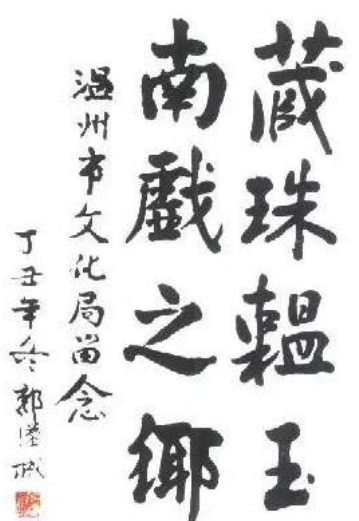 藏珠韞玉
南戲之鄉
温州市文化局留念
丁丑年冬 郭漢城